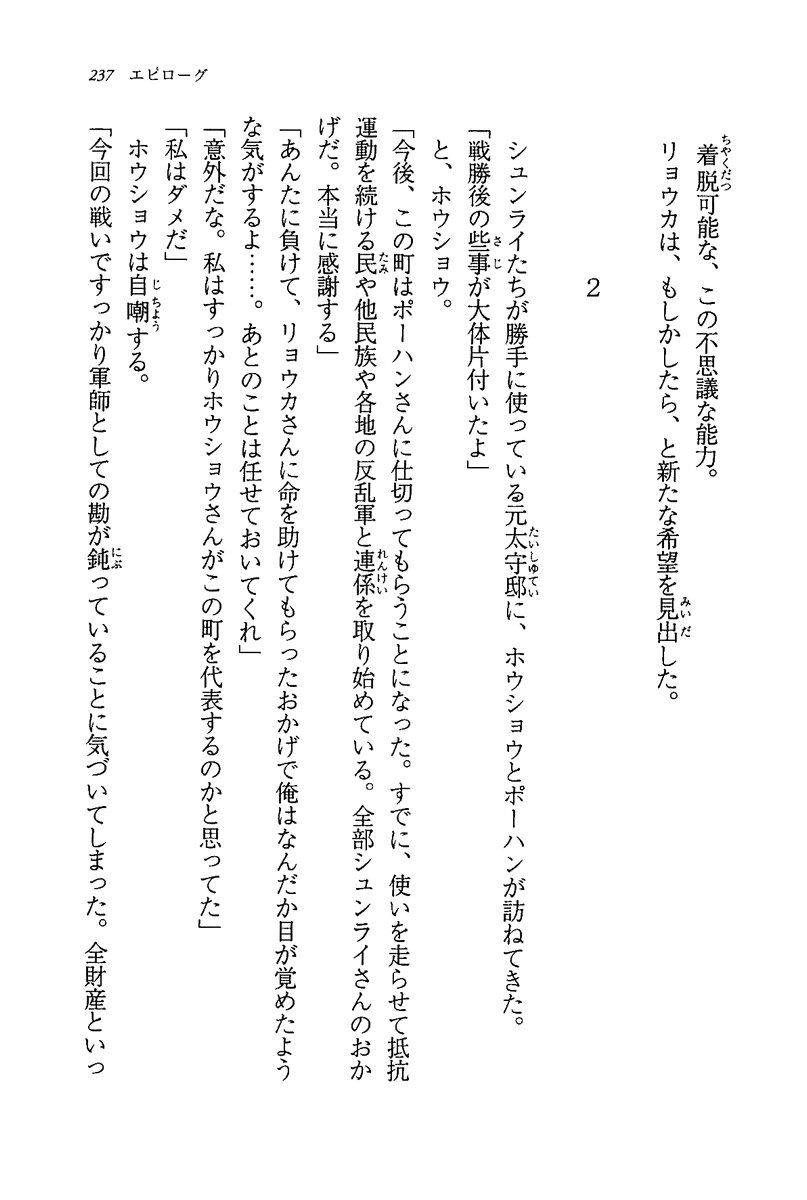 237 エピローグ
着脱可能な、この不思議な能力。
リョウカは、もしかしたら、と新たな希望を見出した。
2
シュンライたちが勝手に使っている元太守邸に、ホウショウとポーハンが訪ねてきた。
「戦勝後の些事が大体片付いたよ」
と、ホウショウ。
「今後、この町はポーハンさんに仕切ってもらうことになった。すでに、使いを走らせて抵抗
運動を続ける民や他民族や各地の反乱軍と連係を取り始めている。全部シュンライさんのおか
げだ。本当に感謝する」
「あんたに負けて、リョウカさんに命を助けてもらったおかげで俺はなんだか目が覚めたよう
な気がするよ……。あとのことは任せておいてくれ」
「意外だな。私はすっかりホウショウさんがこの町を代表するのかと思ってた」
「私はダメだ」
ホウショウは自嘲する。
「今回の戦いですっかり軍師としての勘が鈍っていることに気づいてしまった。全財産といっ